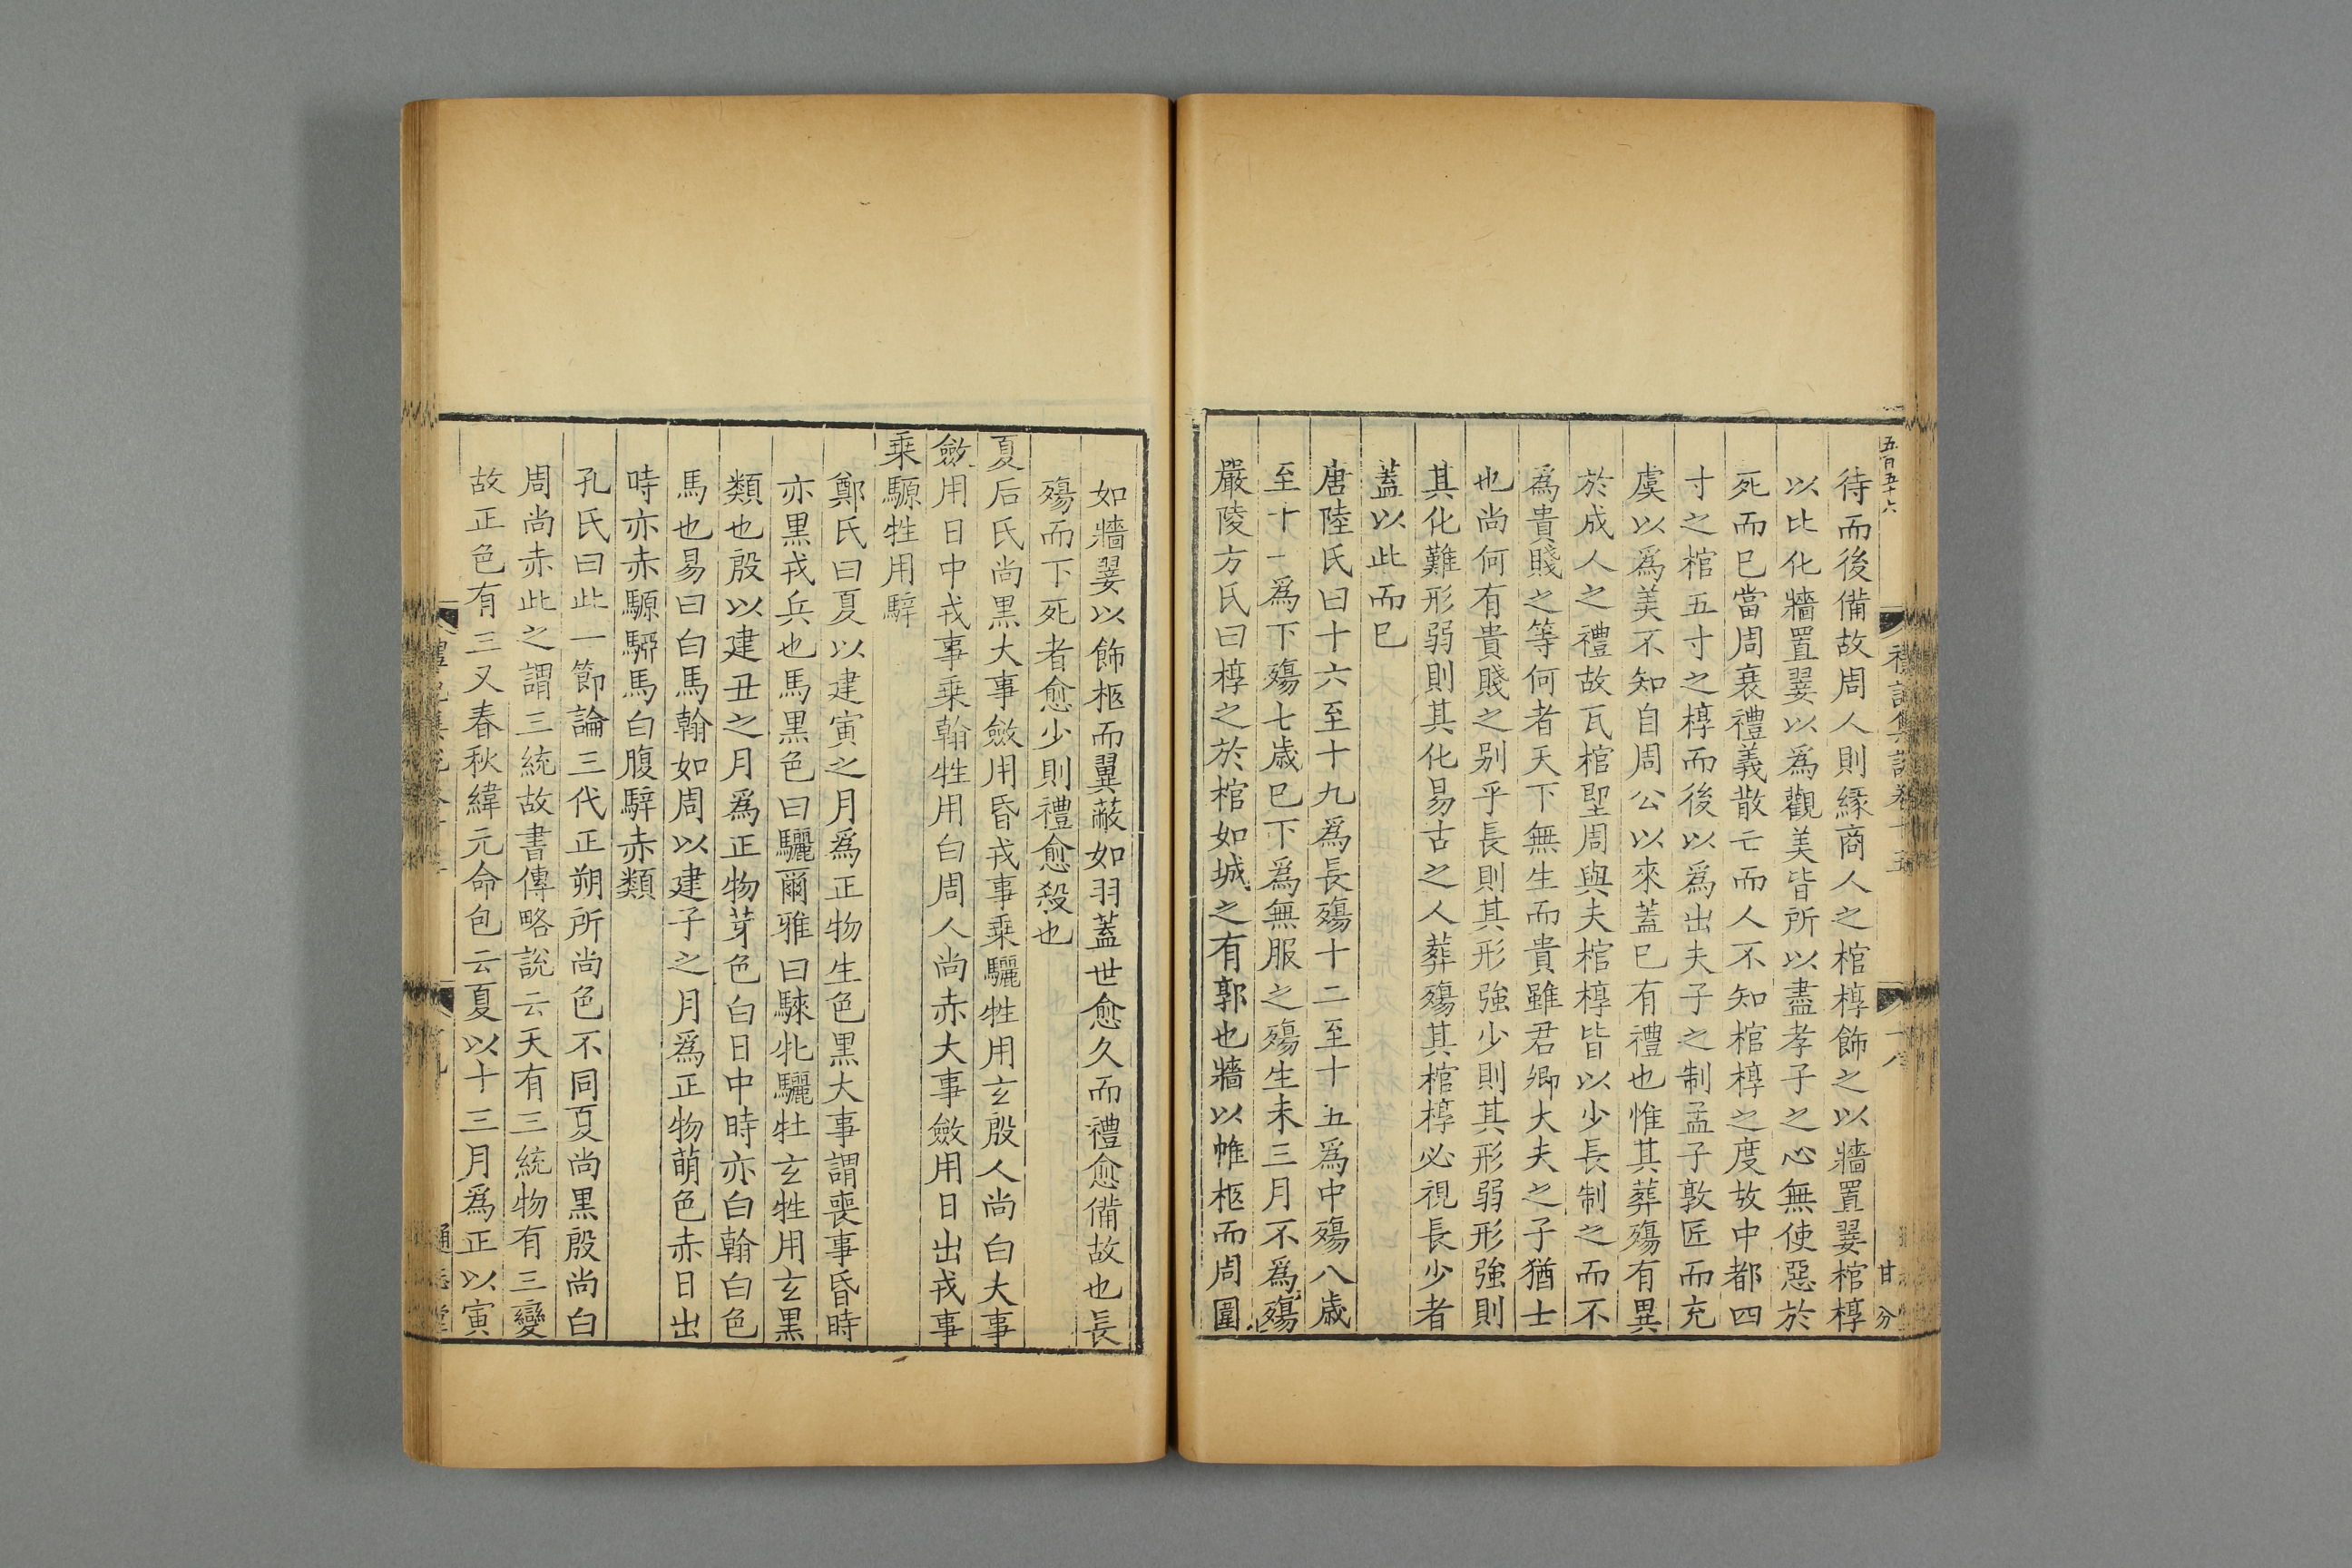 五百五十六
待而後備故周人則緣商人之棺椁飾之以牆置翣棺椁
以比化牆置翣以爲觀美皆所以盡孝子之心無使惡於
死而巳當周衰禮義散亡而人不知棺椁之度故中都四
寸之棺五寸之椁而後以爲出夫子之制孟子敦匠而充
虞以爲美不知自周公以來蓋巳有禮也惟其葬殤有異
於成人之禮故瓦棺堲周與夫棺椁皆以少長制之而不
爲貴賤之等何者天下無生而貴雖君卿大夫之子猶士
也尚何有貴賤之别乎長則其形強少則其形弱形強則
其化難形弱則其化易古之人葬殤其棺椁必視長少者
蓋以此而巳
唐陸氏曰十六至十九爲長殤十二至十五爲中殤八歲
至十一爲下殤七歲巳下爲無服之殤生未三月不爲殤
嚴陵方氏曰椁之於棺如城之有郭也牆以帷柩而周圍
如牆翣以飾柩而翼蔽如羽蓋世愈久而禮愈備故也長
殤而下死者愈少則禮愈殺也
夏后氏尚黒大事斂用昏戎事乗驪牲用玄殷人尚白大事
斂用日中戎事乗翰牲用白周人尚赤大事斂用日出戎事
乗騵牲用騂
鄭氏曰夏以建寅之月爲正物生色黒大事謂喪事昏時
亦黒戎兵也馬黒色曰驪爾雅曰騋牝驪牡玄牲用玄黒
類也殷以建丑之月爲正物芽色白日中時亦白翰白色
馬也易曰白馬翰如周以建子之月爲正物萌色赤日出
時亦赤騵騮馬白腹騂赤類
孔氏曰此一節論三代正朔所尚色不同夏尚黒殷尚白
周尚赤此之謂三統故書傳略說云天有三統物有三變
故正色有三又春秋緯元命包云夏以十三月爲正以寅